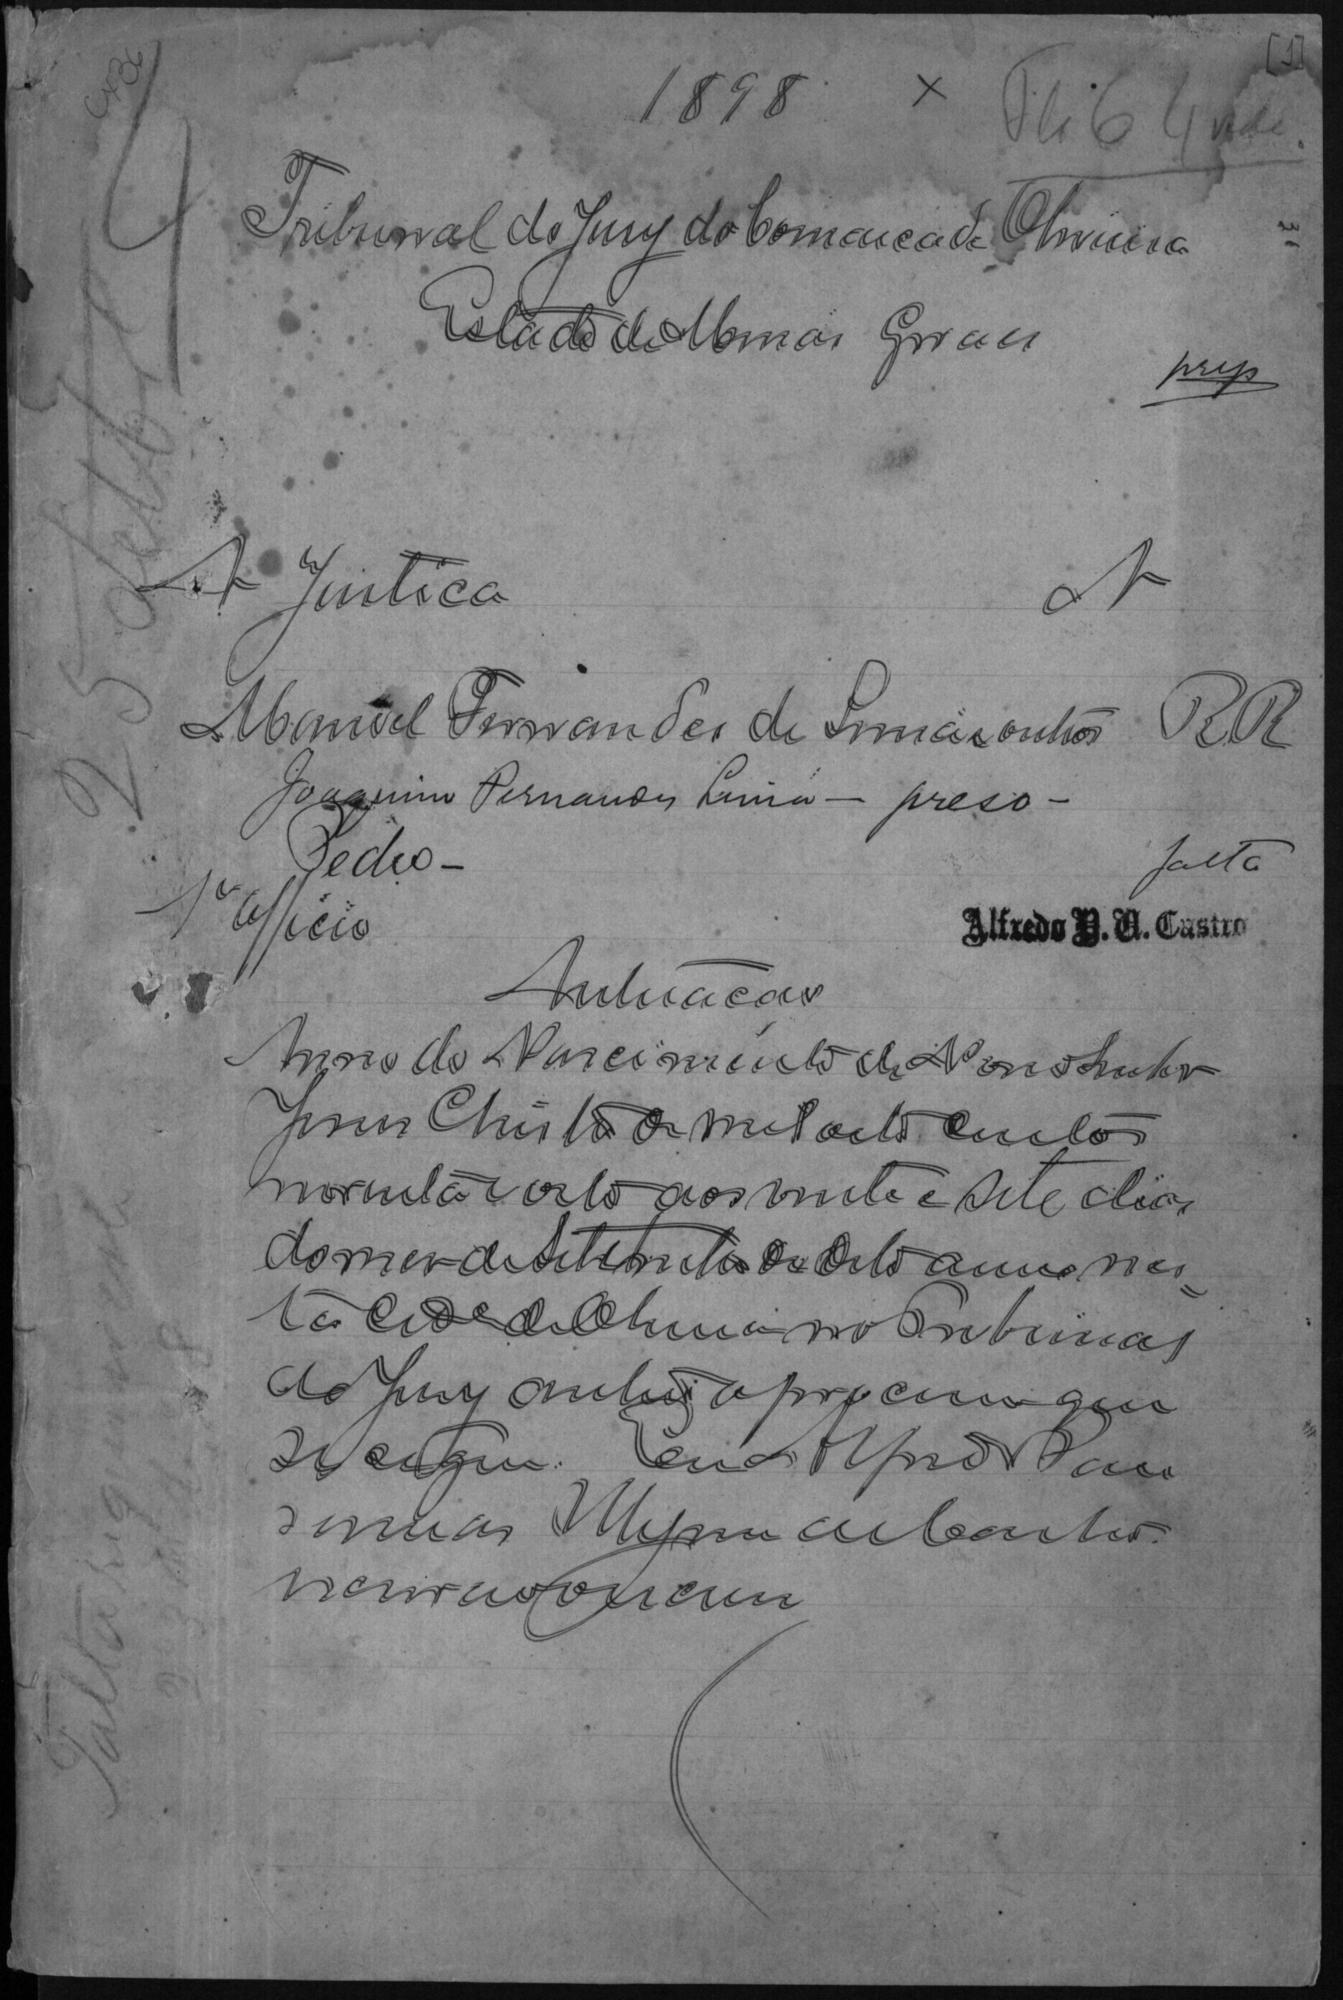 [1]
1898 ×
Tribunal do Jury da Comarca de Oliveira
Estado de Minas Geraes
A Justiça A
Manoel Fernandes de Lima e outros RR
Joaquim Fernandes Lima — preso —
Pedro — falta
1º Officio
Alfredo P. A. Castro
Autuação
Anno do Nascimento de Nosso Senhor
Jesus Christo de mil oito centos
noventa e oito aos vinte e sete dias
do mez de Setembro do dito anno nes-
ta cidade de Oliveira no Tribunal
do Jury autuo o processo que
se segue. Eu Alfredo
de Castro
escrivão o escrevi
25 Setbro
Falta